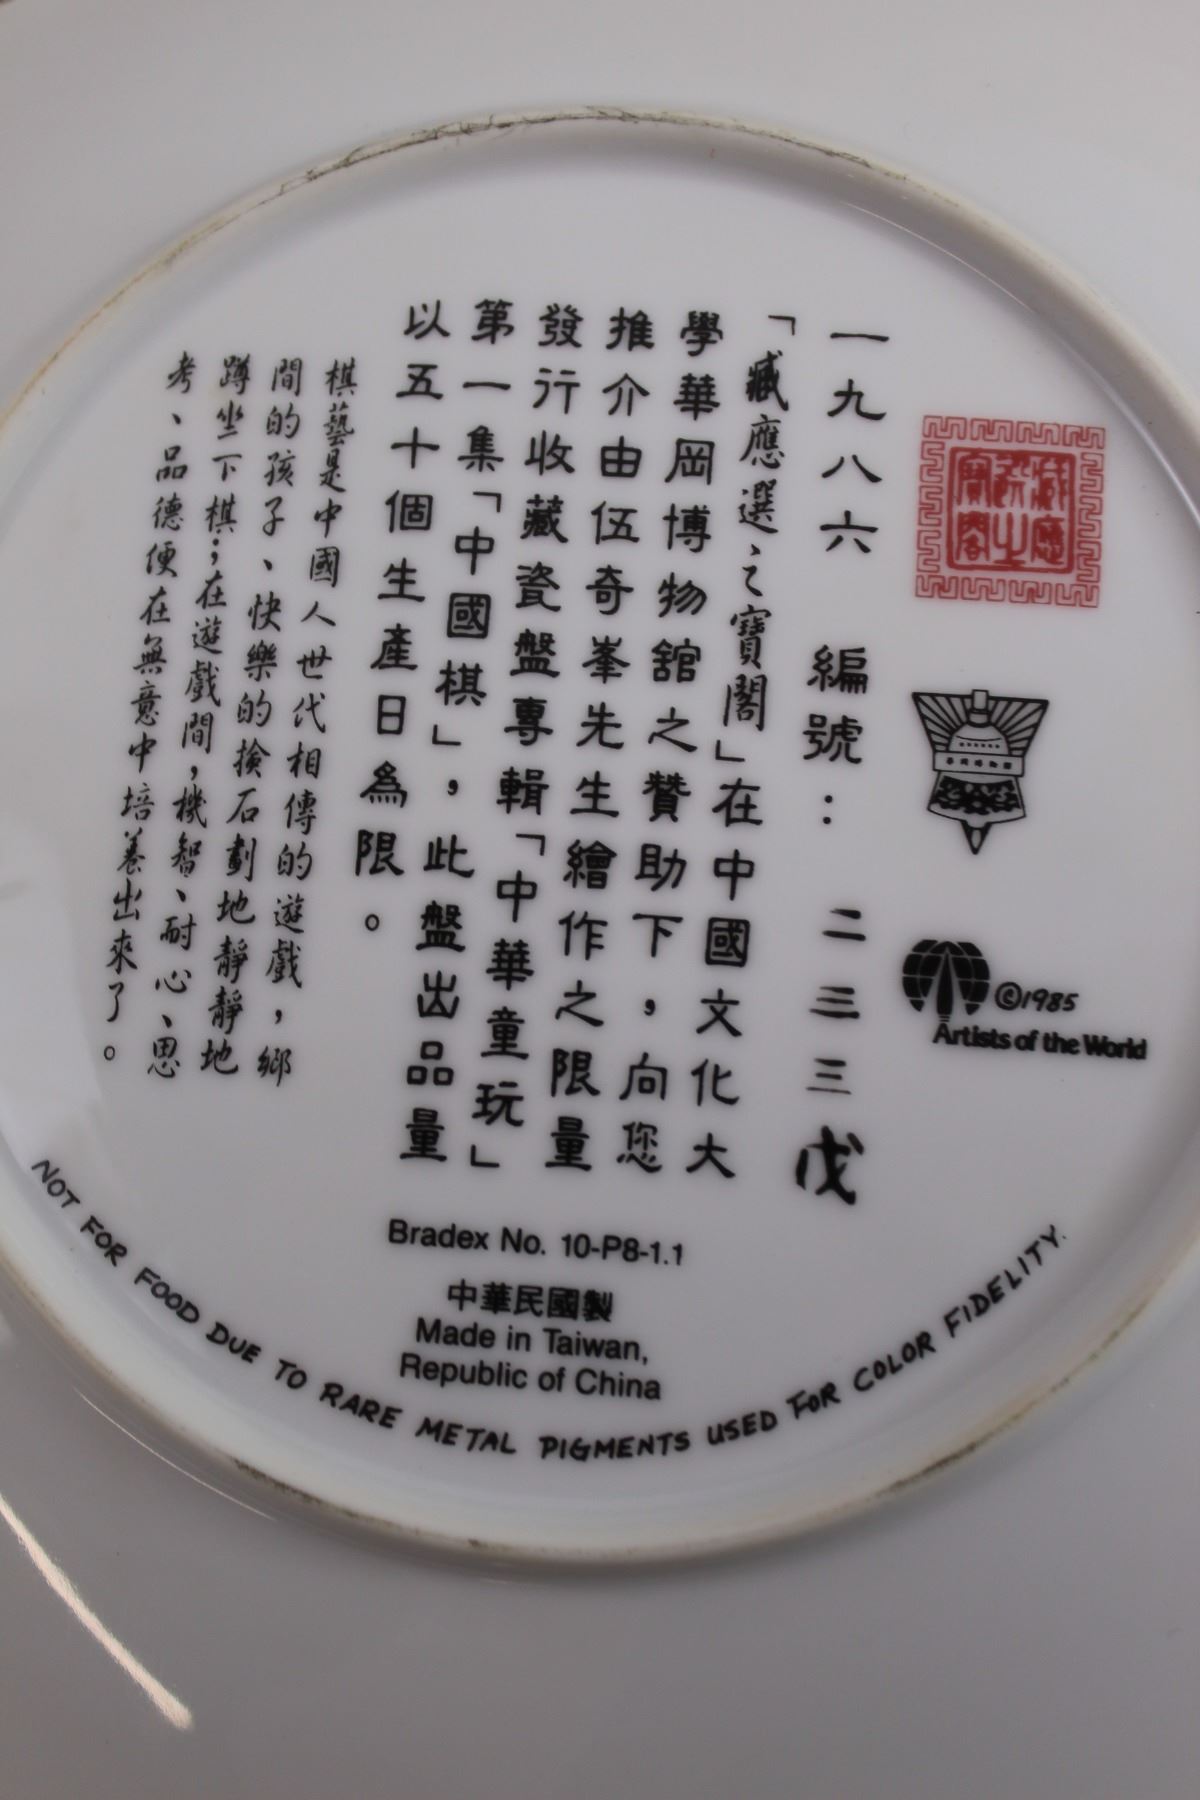 一九八六 編號： 二三三戊
「臧應選之寶閣」在中國文化大
學華岡博物舘之贊助下，向您
推介由伍奇峯先生繪作之限量
發行收藏瓷盤專輯「中華童玩」
第一集「中國棋」，此盤出品量
以五十個生產日為限。
棋藝是中國人世代相傳的遊戲，鄉
間的孩子、快樂的撿石劃地靜靜地
蹲坐下棋；在遊戲間，機智、耐心、思
考、品德便在無意中培養出來了。
臧應
選之
寶閣
華岡博物館
©1985
Artists of the World
Bradex No. 10-P8-1.1
中華民國製
Made in Taiwan,
Republic of China
NOT FOR FOOD DUE TO RARE METAL PIGMENTS USED FOR COLOR FIDELITY.